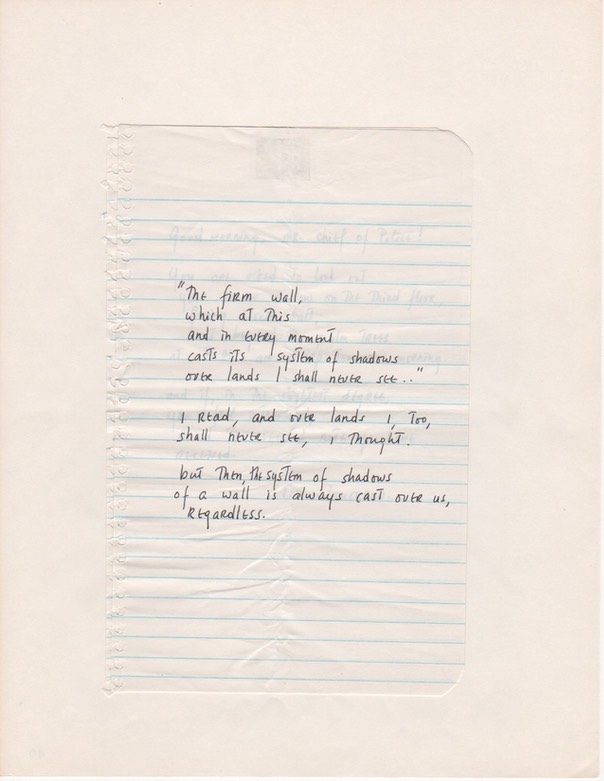 "The firm wall,
which at this
and in every moment
casts its system of shadows
over lands I shall never see.."
I read, and over lands I, too,
shall never see, I thought.
but then, the system of shadows
of a wall is always cast over us,
regardless.